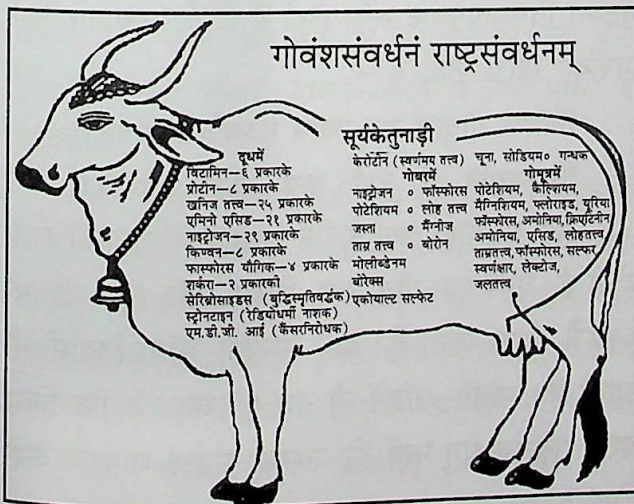 गोवंशसंवर्धनं राष्ट्रसंवर्धनम्
सूर्यकेतुनाड़ी
दूधमें
विटामिन—६ प्रकारके
प्रोटीन—८ प्रकारके
खनिज तत्त्व—२५ प्रकारके
एमिनो एसिड—२१ प्रकारके
नाइट्रोजन—२९ प्रकारके
किण्वन—८ प्रकारके
फास्फोरस यौगिक—४ प्रकारके
शर्करा—२ प्रकारकी
सेरिब्रोसाइडस (बुद्धिस्मृतिवर्द्धक)
स्ट्रोनटाइन (रेडियोधर्मी नाशक)
एम.डी.जी. आई (कैंसरनिरोधक)
केरोटीन (स्वर्णमय तत्त्व)
गोबरमें
नाइट्रोजन ० फॉस्फोरस
पोटेशियम ० लोह तत्त्व
जस्ता ० मैंग्नीज
ताम्र तत्त्व ० बोरोन
मोलीब्डेनम
बोरेक्स
एकोयाल्ट सल्फेट
चूना, सोडियम० गन्धक
गोमूत्रमें
पोटेशियम, कैल्शियम,
मैग्निशियम, फ्लोराइड, यूरिया
फॉस्फोरस, अमोनिया, क्रिएटिनीन
अमोनिया, एसिड, लोहतत्त्व
ताम्रतत्त्व, फॉस्फोरस, सल्फर,
स्वर्णक्षार, लेक्टोज,
जलतत्त्व